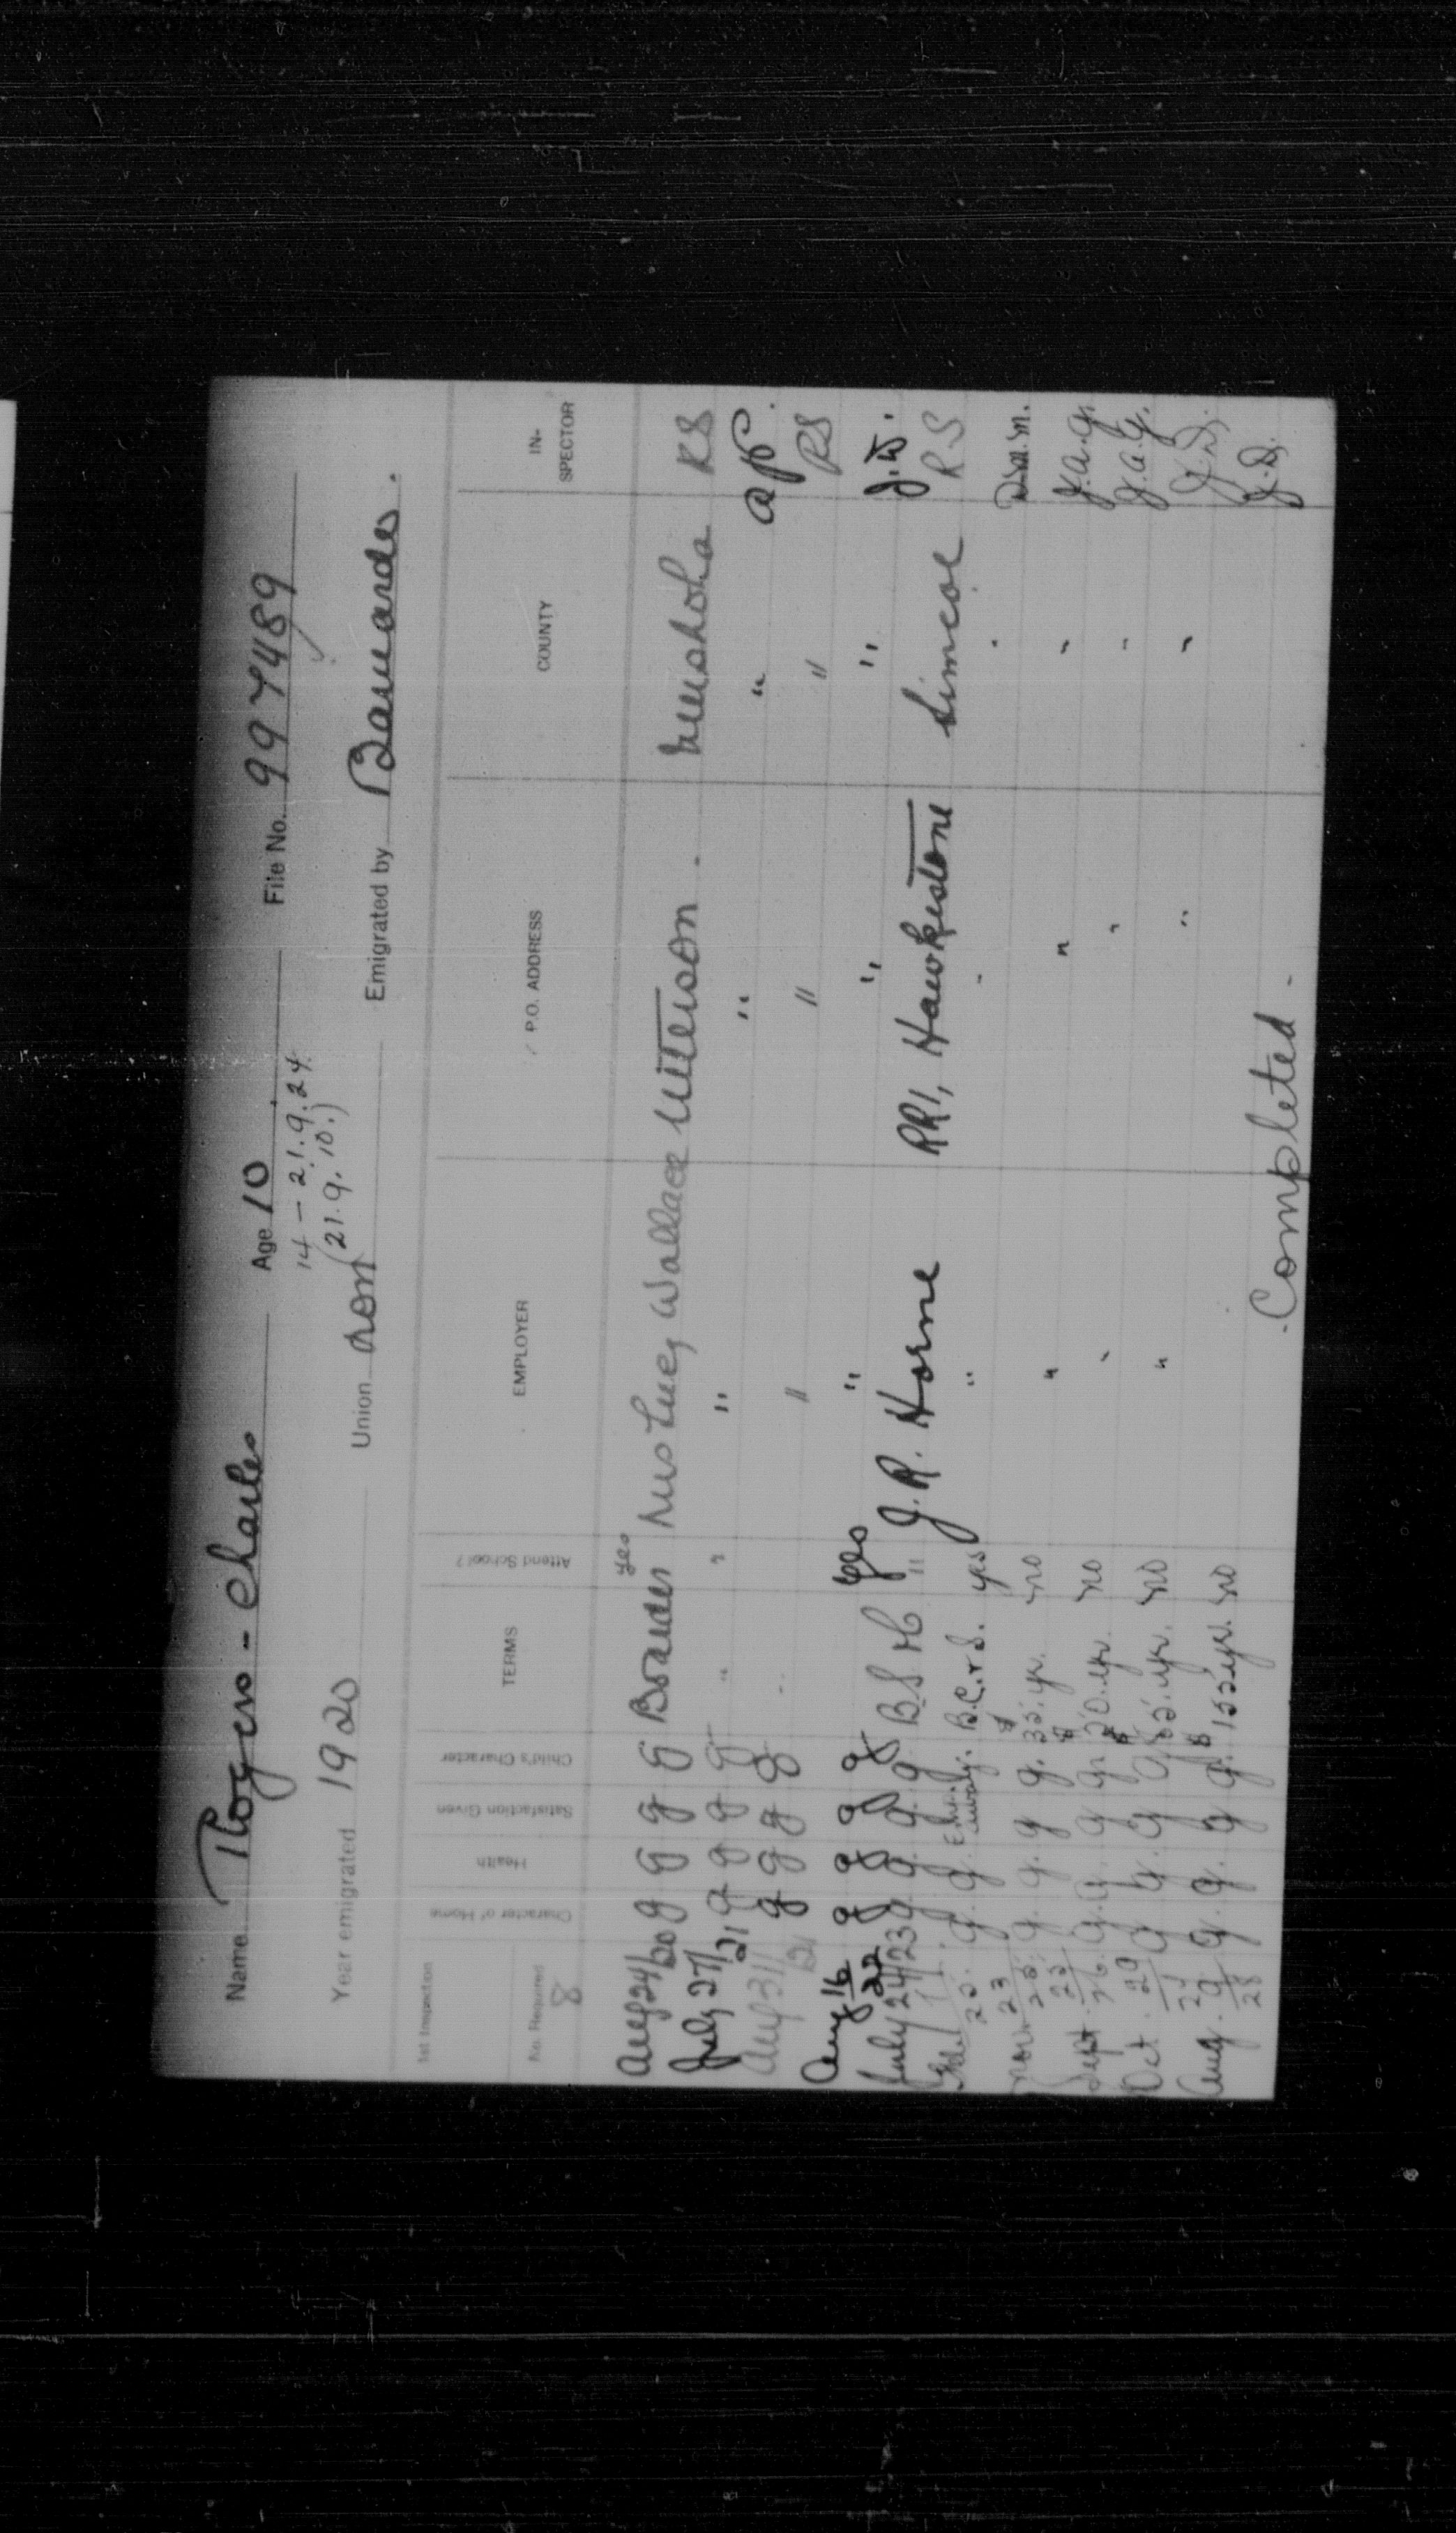 Name Rogers - Charles Age 10 File No. 997489
14 - 21.9.24.
(21.9.10.)
Year emigrated 1920 Union non Emigrated by Barnardos.
1st Inspection
No. Required 8 Character of Home Health Satisfaction Given Child's Character TERMS Attend School? EMPLOYER P.O. ADDRESS COUNTY IN-SPECTOR
Aug 24/20 g g g g Boarder yes Mrs Lucy Wallace Utterson. Muskoka RS
July 27/21 g g g g " " " " "
Aug 31/21 g g g g " " " " RS
Aug 16/22 g g g g yes " " " J.W.
July 24/23 g g g g B.S.H " J.R. Horne RR1, Hawkestone Simcoe R.S
g. g. B.C.&S. yes "
Nov. 23/25 g. g. g g. $35.yr. no " " " J.A.G.
Sept. g. g. g g. $50.yr. no " " " J.A.G.
Oct. g g. g g no " " " J.D.
Aug. g. g. g g. $152 yr. no J.D.
- Completed -